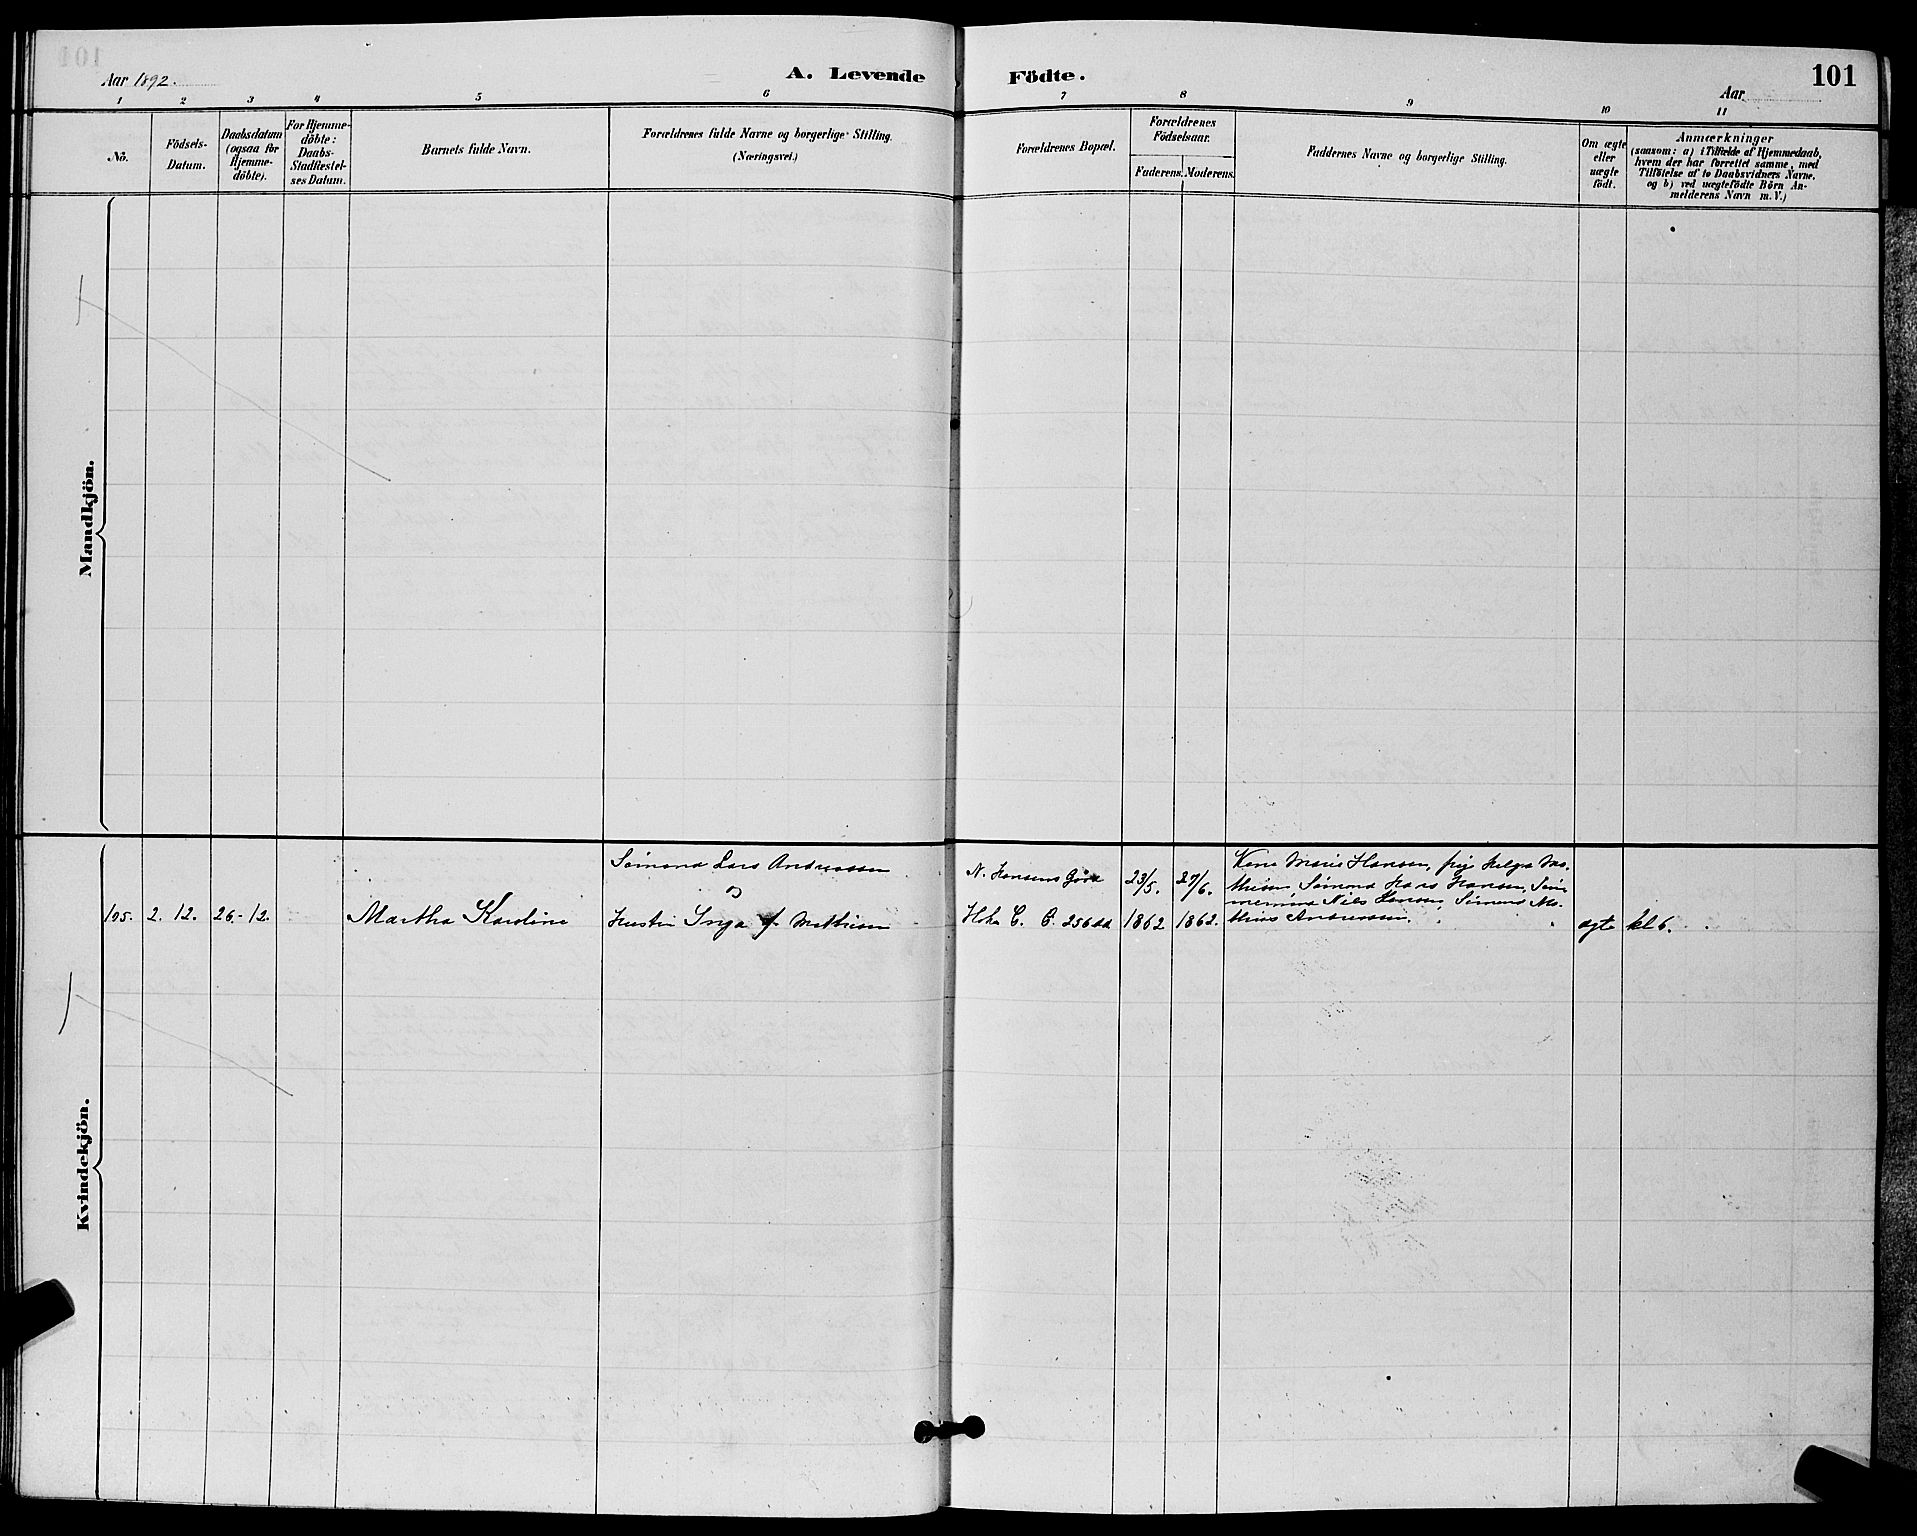 Aar 1892.
A. Levende
Födte.
Aar
101
1 2 3 4 5 6 7 8 9 10 11
No.
Födsels-
Datum.
Daabsdatum
(ogsaa for
Hjemme-
döbte).
For Hjemme-
döbte:
Daabs-
Stadfæstel-
ses Datum.
Barnets fulde Navn.
Forældrenes fulde Navne og borgerlige Stilling.
(Næringsvei.)
Forældrenes Bopæl.
Forældrenes
Födselsaar.
Faderens. Moderens.
Faddernes Navne og borgerlige Stilling.
Om ægte
eller
uægte
födt.
Anmærkninger
(saasom: a) i Tilfælde af Hjemmedaab,
hvem der har forrettet samme, med
Tilföielse af to Daabsvidners Navne,
og b) ved uægtefödte Börn An-
melderens Navn m. V.)
Mandkjön.
Kvindekjön.
105. 2. 12. 26.-12.
Martha Karoline
Sömand Lars Andreassen
Hustru Inga f. Mathisen
N. Hansens Gård
C. 256
23/5.
1862
27/6.
1862.
Kone Marie Hansen, pige Helga Ma-
thisen Sömand Hans Hansen, Söm
Niels Hansen, Sömand Ma-
thias Andreassen.
ægte
kl 6.